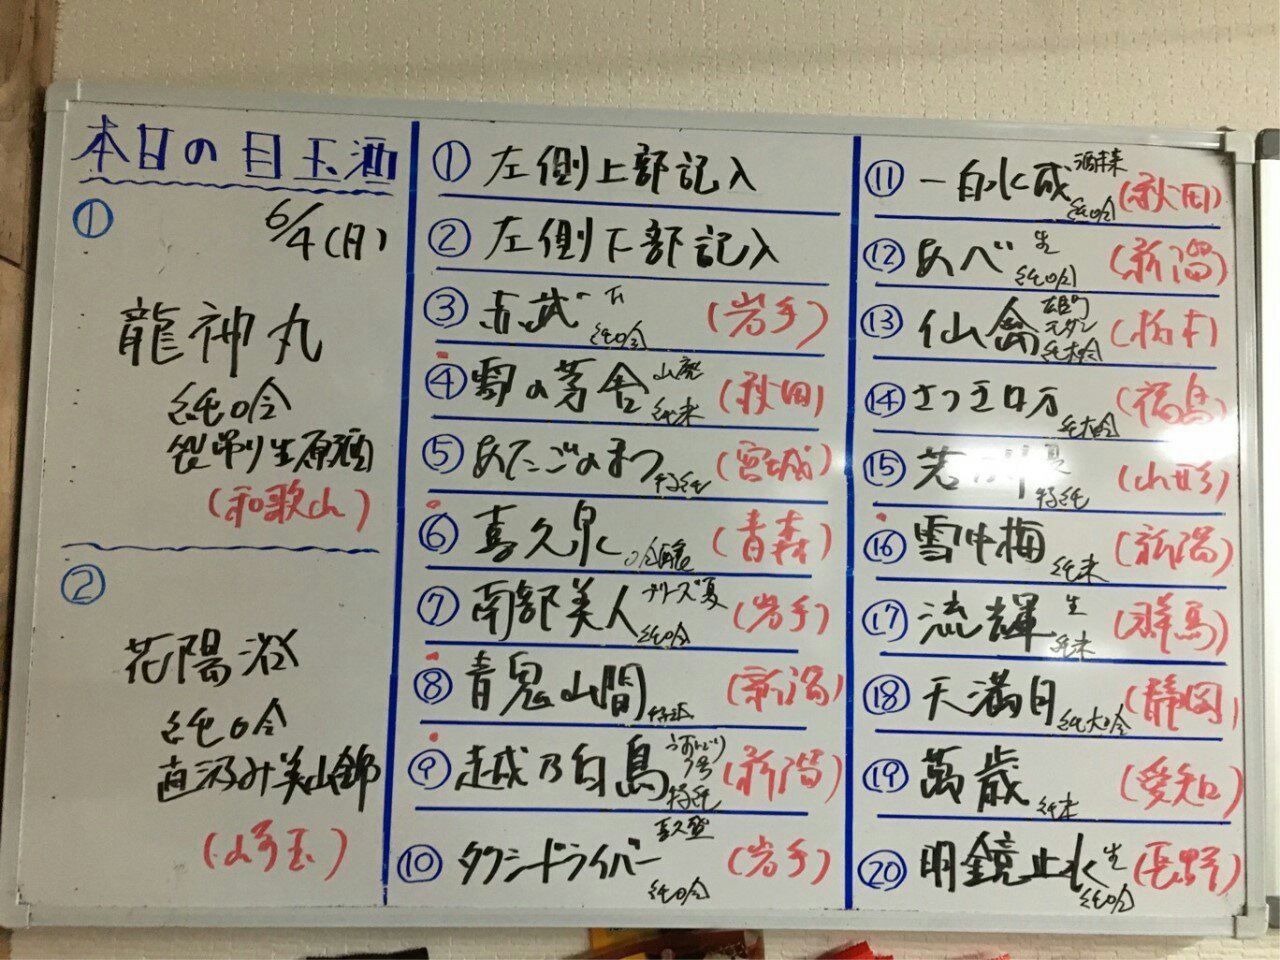 本日の目玉酒
①
6/4(月)
龍神丸
純吟
袋吊り生原酒
(和歌山)
②
花陽浴
純吟
直汲み美山錦
(埼玉)
① 左側上部記入
② 左側下部記入
③ 赤武 純吟 (岩手)
④ 雪の茅舎 山廃 純米 (秋田)
⑤ あたごのまつ 特純 (宮城)
⑥ 喜久泉 (青森)
⑦ 南部美人 純吟 (岩手)
⑧ 青鬼山間 特純 (新潟)
⑨ 越乃白鳥 特純 (新潟)
⑩ タクシードライバー 喜久盛 純吟 (岩手)
⑪ 一白水成 酒未来 純吟 (秋田)
⑫ あべ 生 純吟 (新潟)
⑬ 仙禽 雄町 モダン 純大吟 (栃木)
⑭ さつき口万 純大吟 (福島)
⑮ 特純 (山形)
⑯ 雪中梅 純米 (新潟)
⑰ 流輝 生 純米 (群馬)
⑱ 天満月 純大吟 (静岡)
⑲ 萬歳 純米 (愛知)
⑳ 明鏡止水 生 純吟 (長野)